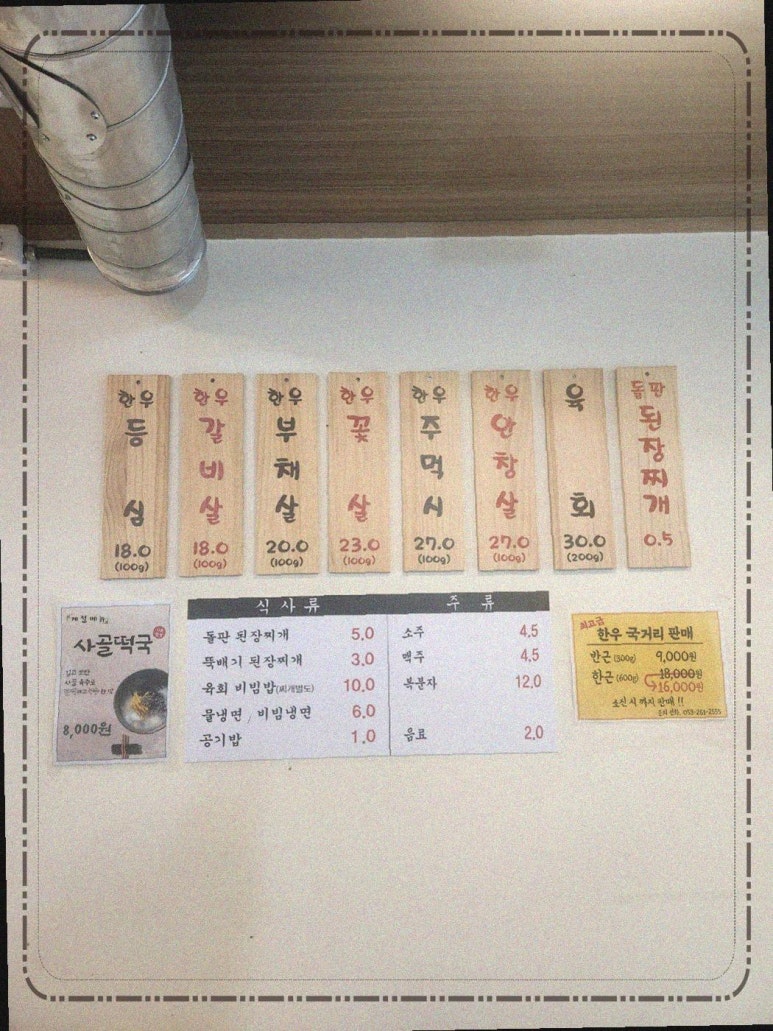 한우
등심
18.0
(100g)
한우
갈비살
18.0
(100g)
한우
부채살
20.0
(100g)
한우
꽃살
23.0
(100g)
한우
주먹시
27.0
(100g)
한우
안창살
27.0
(100g)
육회
30.0
(200g)
돌판
된장찌개
0.5
사골떡국
8,000원
식 사 류
돌판 된장찌개 5.0
뚝배기 된장찌개 3.0
육회 비빔밥(찌개별도) 10.0
물냉면 / 비빔냉면 6.0
공기밥 1.0
주 류
소주 4.5
맥주 4.5
복분자 12.0
음료 2.0
최고급
한우 국거리 판매
반근 (300g) 9,000원
한근 (600g) 18,000원
16,000원
소진 시 까지 판매 !!